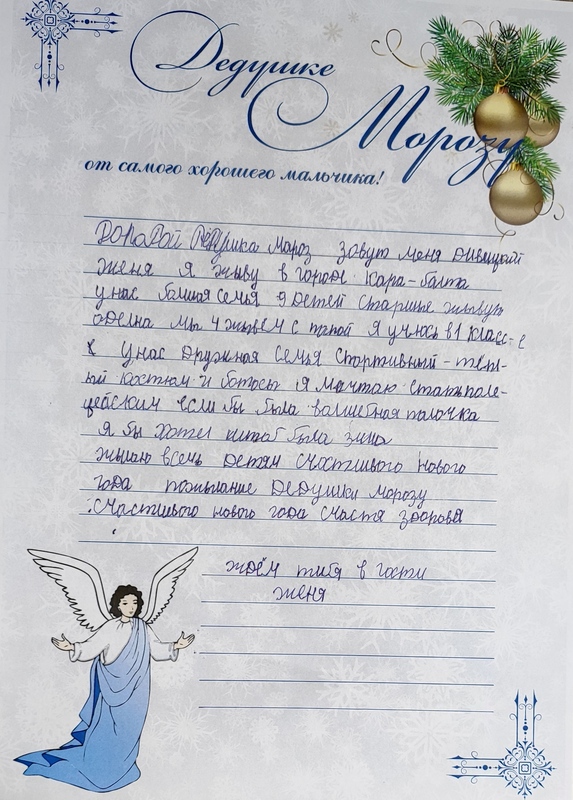 Дедушке
Морозу
от самого хорошего мальчика!
Дорогой Дедушка Мароз зовут меня
Женя я живу в городе Кара-балта
у нас болшая семья 9 детей старшые жывут
оделна мы 4 жывем с папой я учюсь в 1 класс-е
у нас дружная семья спортивный - теп-
ый костюм и ботосы я мичтаю стать поле-
цейским если бы была волшебная палочка
я бы хотел чтоб была зима
жылаю всемь детям счастливого нового
года пожылание Дедушки морозу
счастливого нового года счастя здоровя
ждём тибя в гости
женя